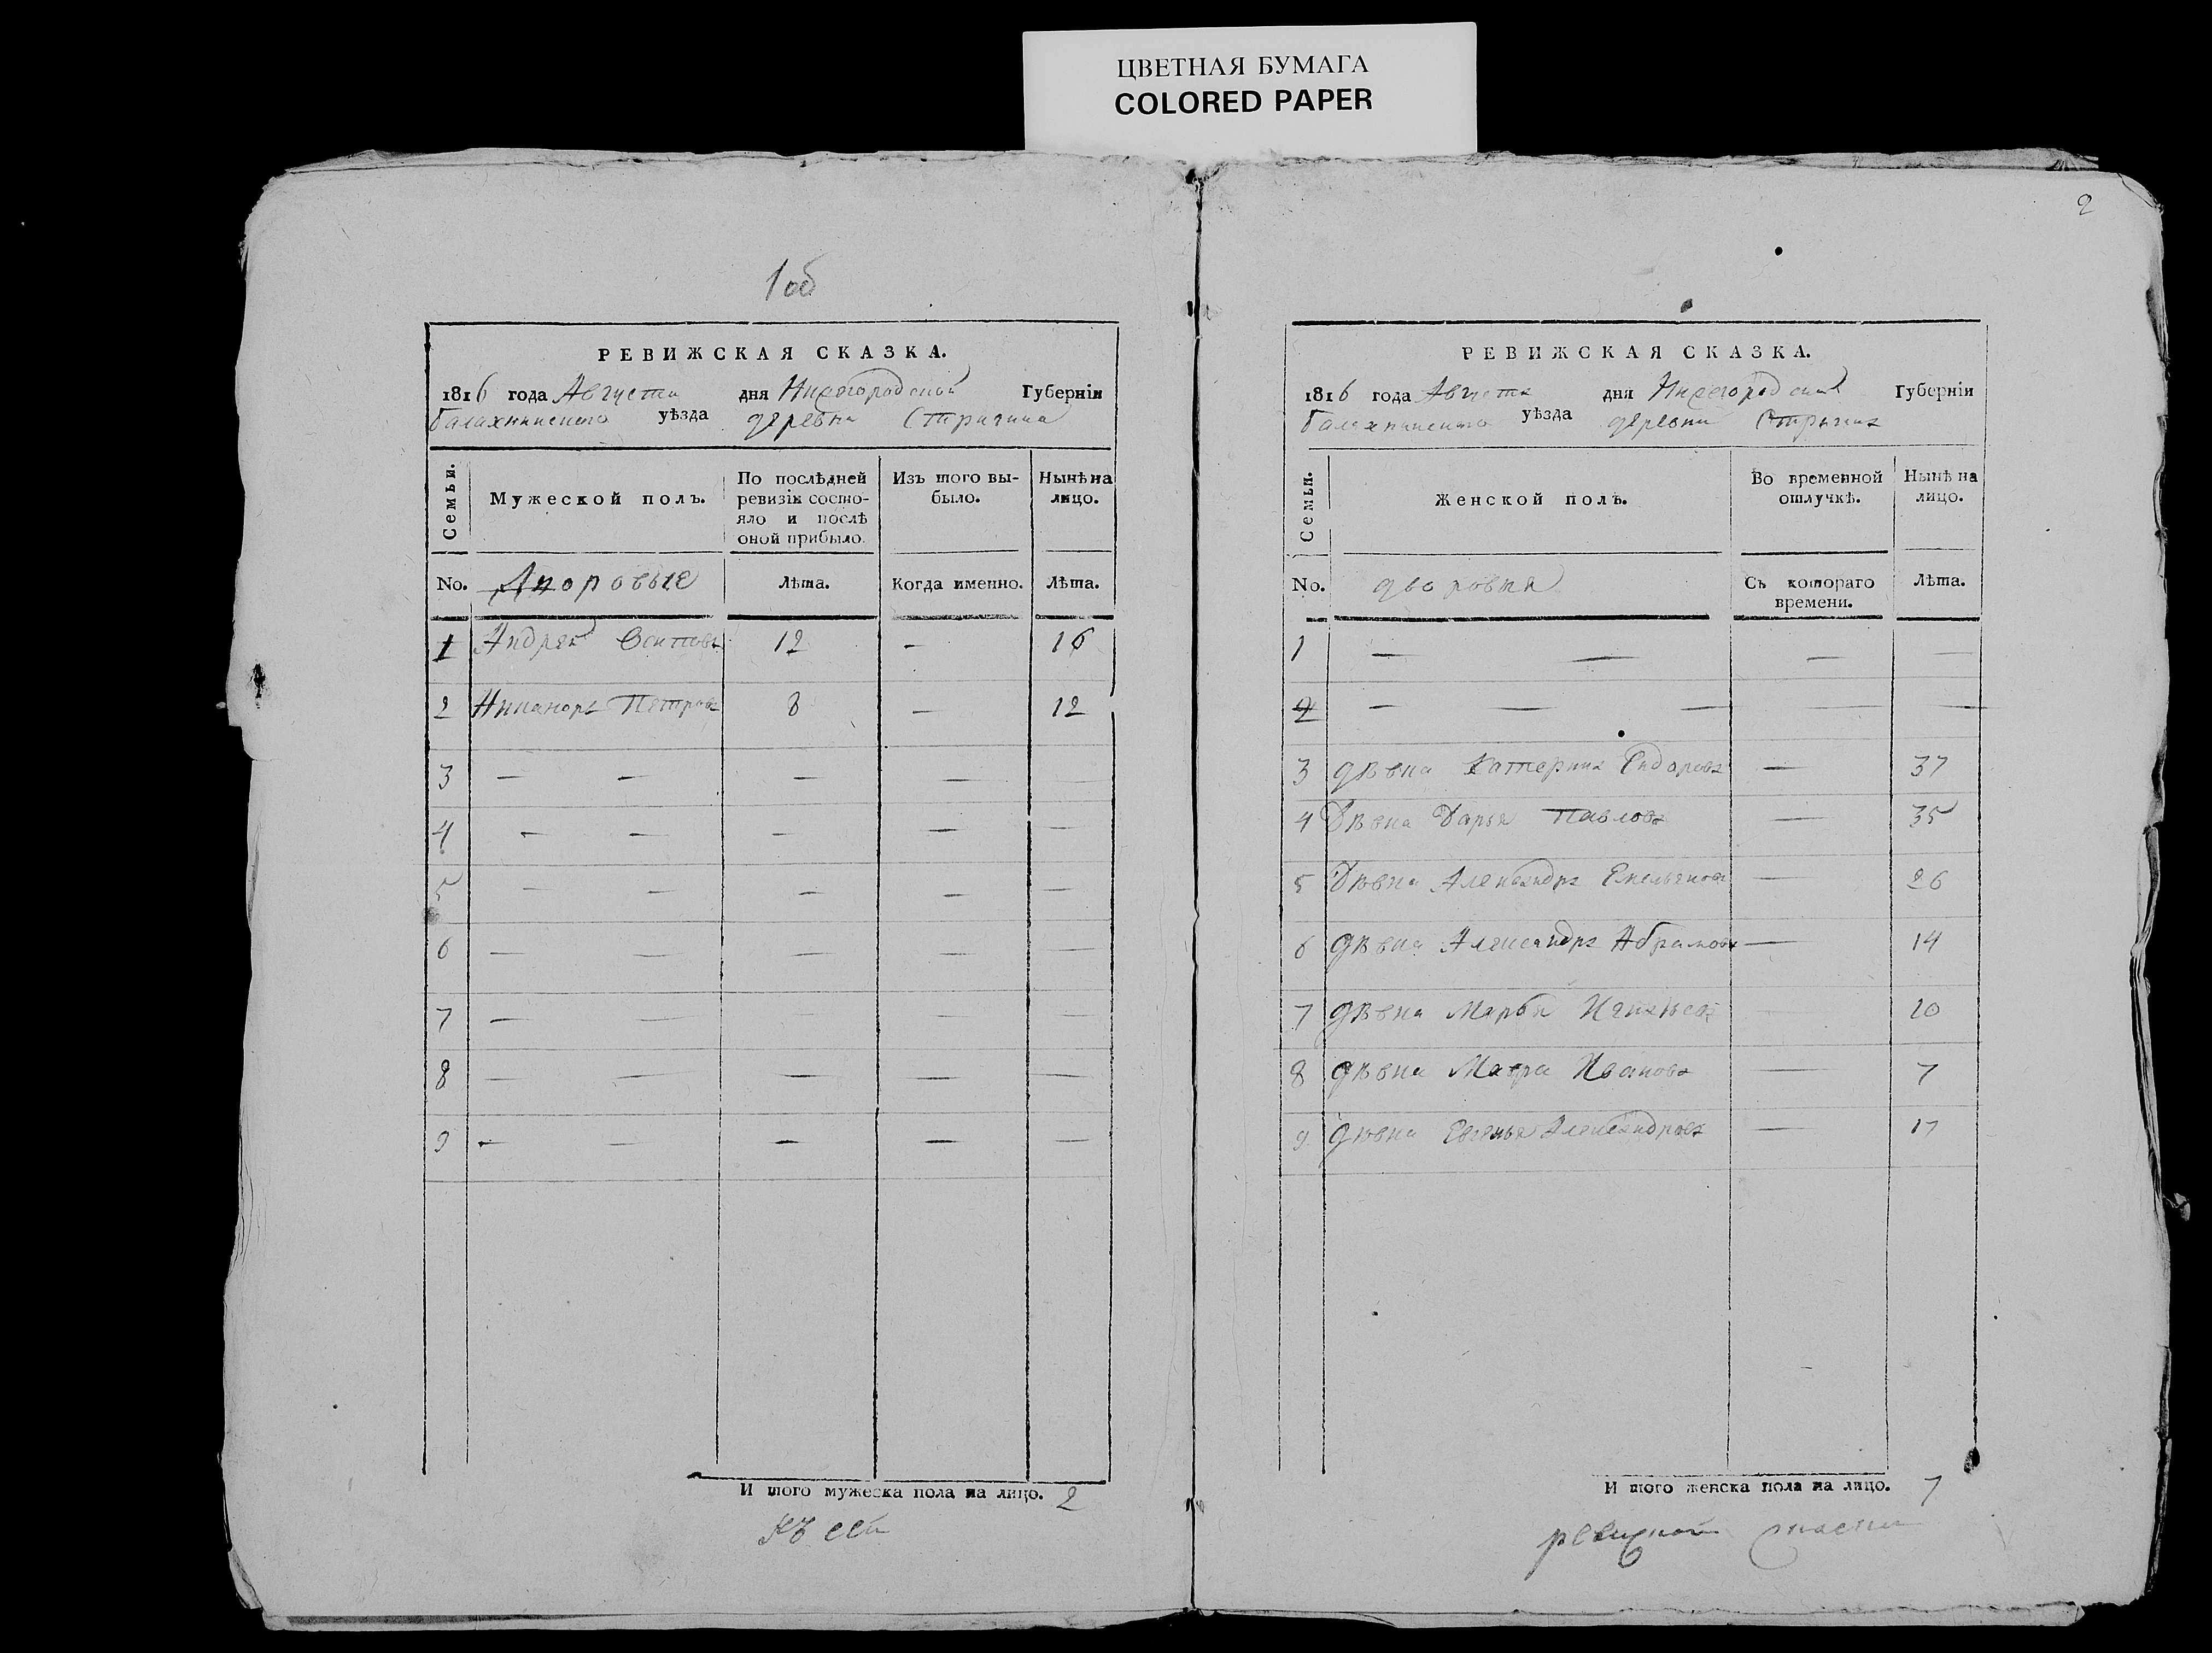 ЦВЕТНАЯ БУМАГА
COLORED PAPER
1 об
РЕВИЖСКАЯ СКАЗКА.
1816 года Августа дня Нижегородской Губерніи
балахнинского уѣзда деревни Стригина
Семьи.
Мужеской полъ.
По послѣдней ревизіи состояло и послѣ оной прибыло.
Изъ того выбыло.
Нынѣ на лицо.
No. Дворовые Лѣта. Когда именно. Лѣта.
1 Андрей Осиповъ 12 — 16
2 Никаноръ Петровъ 8 — 12
3 — — — — —
4 — — — — —
5 — — — — —
6 — — — — —
7 — — — — —
8 — — — — —
9 — — — — —
И того мужеска пола на лицо. 2
Къ сей
2
РЕВИЖСКАЯ СКАЗКА.
1816 года Августа дня Нижегородской Губерніи
балахнинского уѣзда деревни Стригина
Семьи.
Женской полъ.
Во временной отлучкѣ.
Нынѣ на лицо.
No. дворовыя Съ котораго времени. Лѣта.
1 — — — —
2 — — — — —
3 дѣвка Катерина Сидорова — 37
4 Дѣвка Дарья Павлова — 35
5 Дѣвка Александра Емельянова — 26
6 дѣвка Александра Абрамова — 14
7 дѣвка Марья — 10
8 дѣвка Мавра Иванова — 7
9 дѣвка Евгенья Александрова — 17
И того женска пола на лицо. 7
ревижской скаски